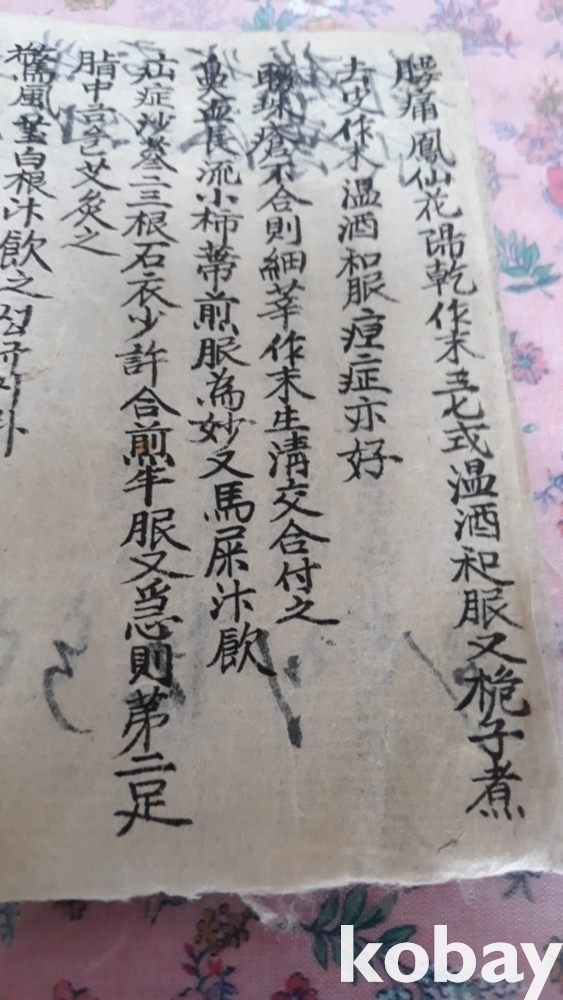 腰痛 鳳仙花陽乾作末五七式温酒和服又梔子煮
去皮作末温酒和服疸症亦好
聯珠瘡不合則細莘作末生清交合付之
鼻血長流小柿蒂煎服為妙又馬屎汁飮
疝症沙蔘二三根石衣少許合煎半服又急則第二足
脂中言色艾灸之
驚風 莖白根汁飮之
kobay